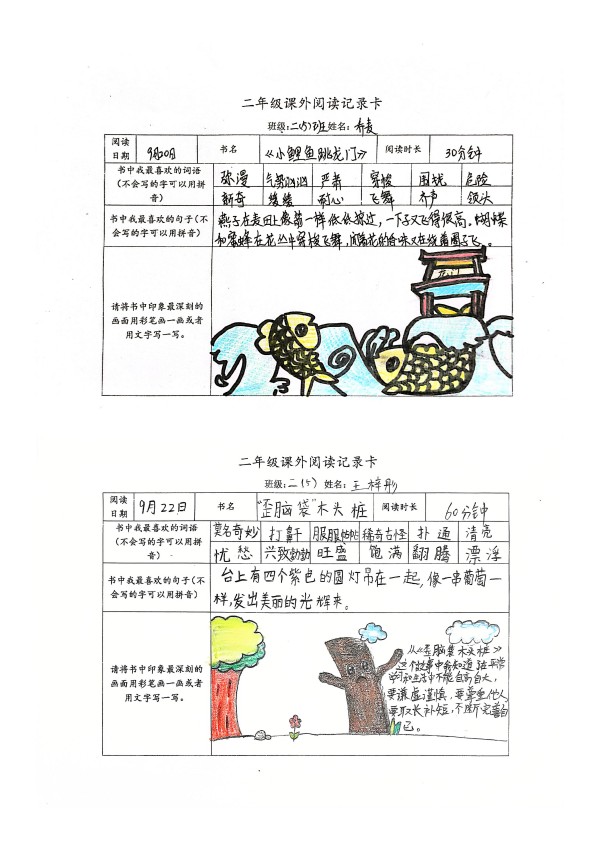 二年级课外阅读记录卡
班级:二(5)班 姓名:
阅读日期 9月20日 书名 《小鲤鱼跳龙门》 阅读时长 30分钟
书中我最喜欢的词语(不会写的字可以用拼音)
弥漫 气势汹汹 严肃 穿梭 围绕 危险
新奇 缓缓 耐心 飞舞 齐声 领头
书中我最喜欢的句子(不会写的字可以用拼音)
燕子在麦田上像箭一样低低掠过,一下子又飞得很高。蝴蝶
和蜜蜂在花丛中穿梭飞舞,闻着花的香味又在绕着圈子飞。
请将书中印象最深刻的画面用彩笔画一画或者用文字写一写。
龙门
二年级课外阅读记录卡
班级:二(5) 姓名:王梓彤
阅读日期 9月22日 书名 "歪脑袋"木头桩 阅读时长 60分钟
书中我最喜欢的词语(不会写的字可以用拼音)
莫名奇妙 打鼾 服服帖帖 稀奇古怪 扑通 清亮
忧愁 兴致勃勃 旺盛 饱满 翻腾 漂浮
书中我最喜欢的句子(不会写的字可以用拼音)
台上有四个紫色的圆灯吊在一起,像一串葡萄一
样,发出美丽的光辉来。
请将书中印象最深刻的画面用彩笔画一画或者用文字写一写。
从《歪脑袋木头桩》
这个故事中我知道在平常
学习和生活中不能自高自大,
要谦虚谨慎,要尊重他人,
要取长补短,不断完善自
己。